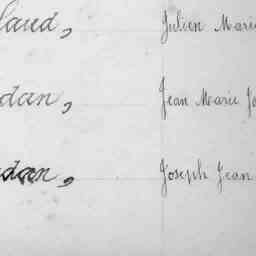 laud, Julien Marie
dan, Jean Marie Jo
dan, Joseph Jean